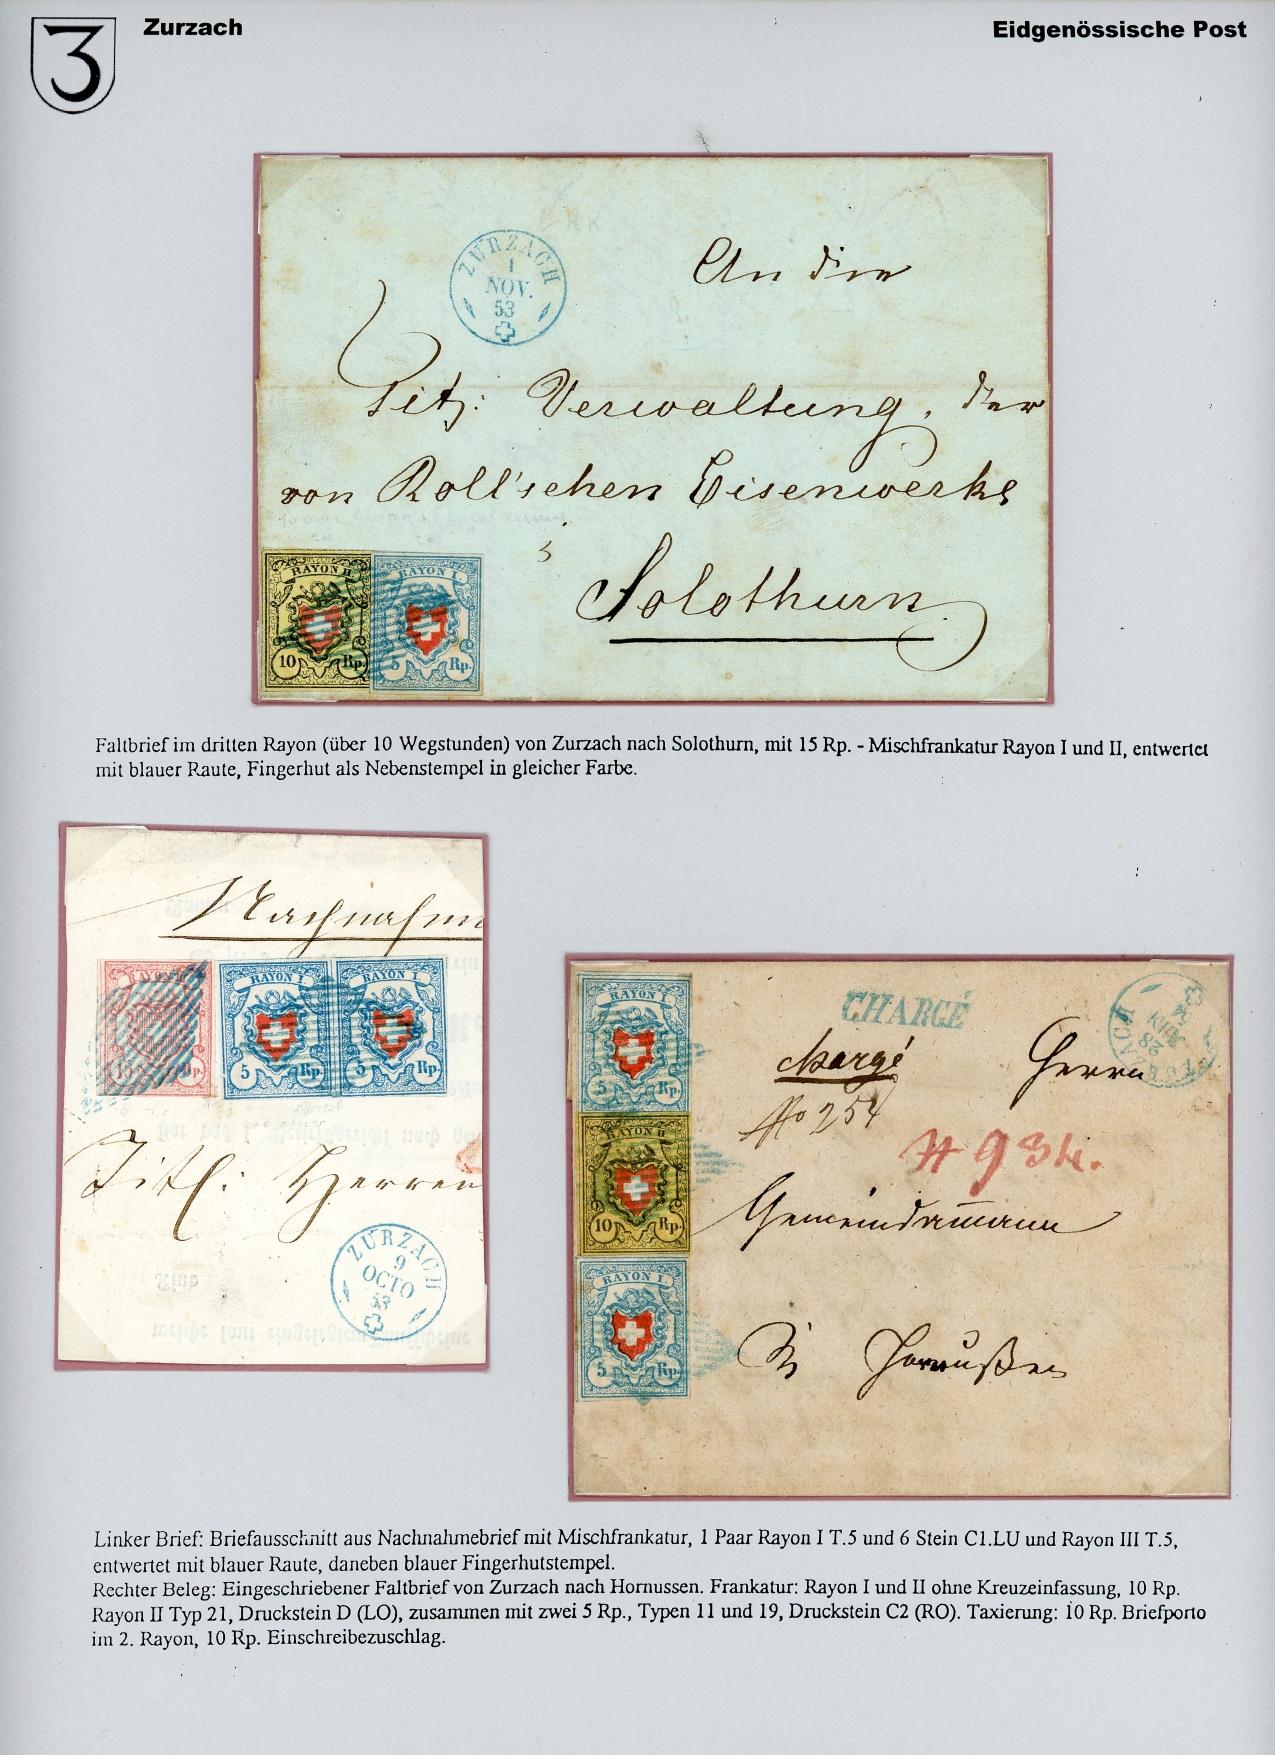 3
Zurzach
Eidgenössische Post
ZURZACH
1
NOV.
53
An die
Titz: Verwaltung, der
von Roll'schen Eisenwerke
Solothurn
RAYON II.
10 Rp.
RAYON I.
5 Rp.
Faltbrief im dritten Rayon (über 10 Wegstunden) von Zurzach nach Solothurn, mit 15 Rp. - Mischfrankatur Rayon I und II, entwertet
mit blauer Raute, Fingerhut als Nebenstempel in gleicher Farbe.
Nachnahm
RAYON
15 Rp.
RAYON I.
5 Rp.
RAYON I.
5 Rp.
Titl: Herren
ZURZACH
9
OCTO
53
RAYON I.
5 Rp.
RAYON II.
10 Rp.
RAYON I.
5 Rp.
CHARGÉ
28
JUIN
54
chargé
No 254
Herrn
# 934.
Gemeindammann
In Hornußen
Linker Brief: Briefausschnitt aus Nachnahmebrief mit Mischfrankatur, 1 Paar Rayon I T.5 und 6 Stein C1.LU und Rayon III T.5,
entwertet mit blauer Raute, daneben blauer Fingerhutstempel.
Rechter Beleg: Eingeschriebener Faltbrief von Zurzach nach Hornussen. Frankatur: Rayon I und II ohne Kreuzeinfassung, 10 Rp.
Rayon II Typ 21, Druckstein D (LO), zusammen mit zwei 5 Rp., Typen 11 und 19, Druckstein C2 (RO). Taxierung: 10 Rp. Briefporto
im 2. Rayon, 10 Rp. Einschreibezuschlag.